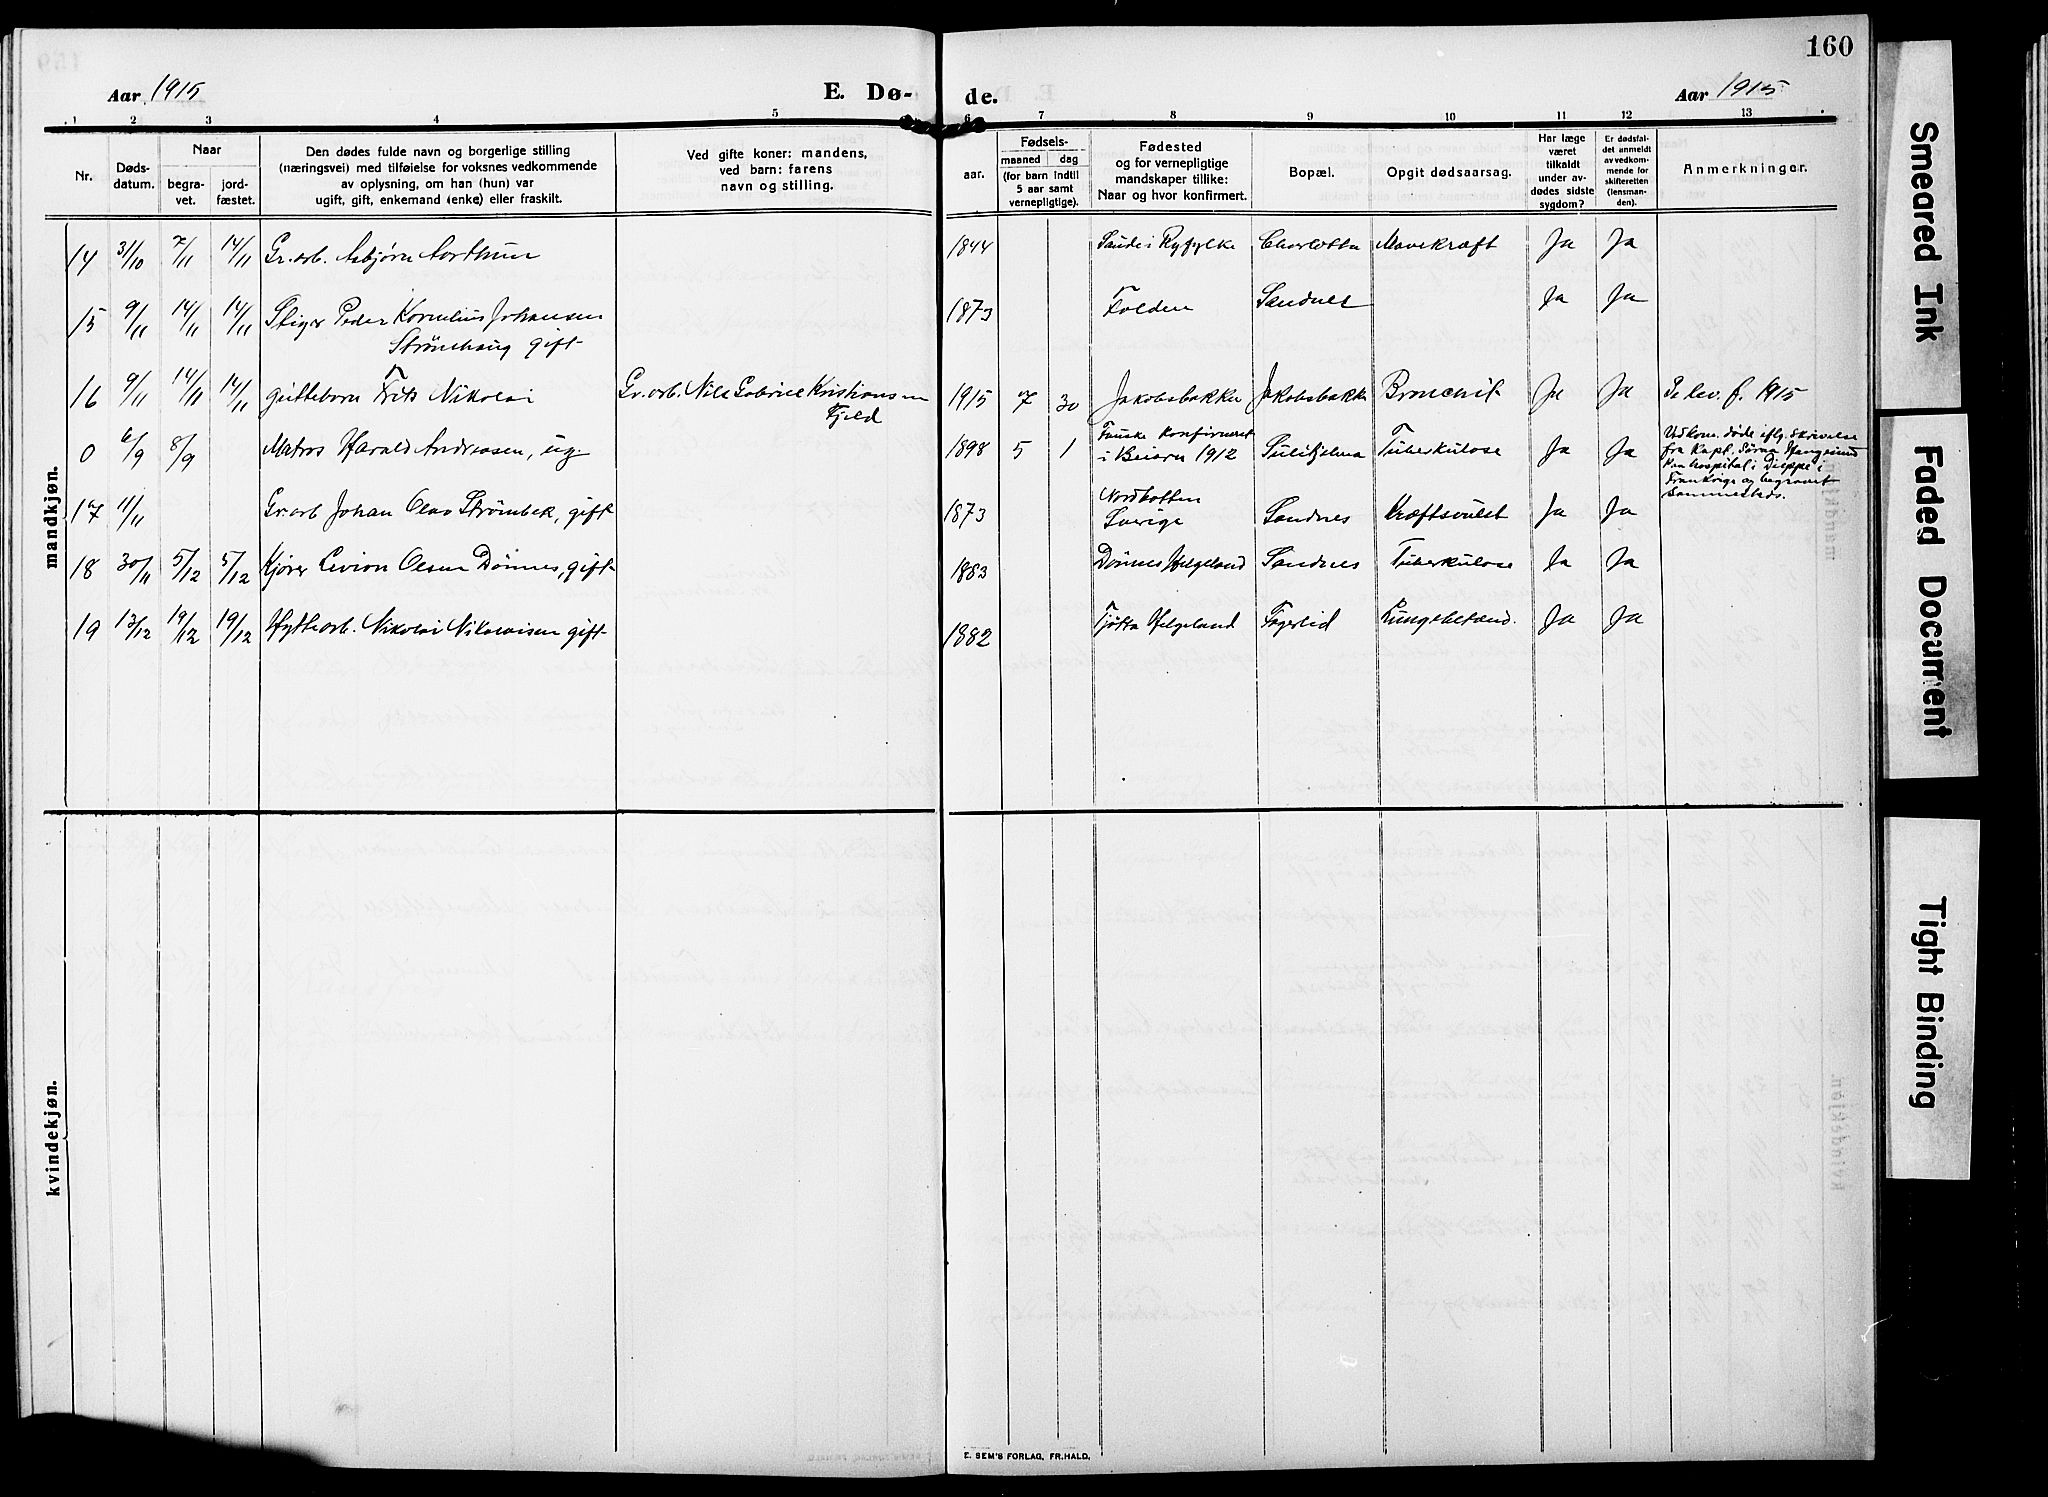 160
Aar 1915
E. Dø-
de.
Aar 1915
1 2 3 4 5 6 7 8 9 10 11 12 13
Nr.
Døds-
datum.
Naar
begra-
vet.
jord-
fæstet.
Den dødes fulde navn og borgerlige stilling
(næringsvei) med tilføielse for voksnes vedkommende
av oplysning, om han (hun) var
ugift, gift, enkemand (enke) eller fraskilt.
Ved gifte koner: mandens,
ved barn: farens
navn og stilling.
aar.
Fødsels-
maaned dag
(for barn indtil
5 aar samt
vernepligtige).
Fødested
og for vernepligtige
mandskaper tillike:
Naar og hvor konfirmert.
Bopæl.
Opgit dødsaarsag.
Har læge
været
tilkaldt
under av-
dødes sidste
sygdom?
Er dødsfal-
det anmeldt
av vedkom-
mende for
skifteretten
(lensman-
den).
Anmerkninger.
mandkjøn.
14 31/10 7/11 14/11 Gr. arb. Asbjørn Aarthun 1844 Sande i Ryfylke Charlotta Mavekræft Ja Ja
15 9/11 14/11 14/11 Stiger Peder Kornelius Johansen 1873 Folden Sandnes Ja Ja
Strømhaug gift
16 9/11 14/11 14/11 gutteborn Frits Nikolai Gr. arb. Nils Gabriel Kristiansen 1915 7 30 Jakobsbakken Jakobsbakken Bronchit Ja Ja Se lev. f. 1915
Fjeld
0 6/9 8/9 Matros Harald Andreasen, ug. 1898 5 1 Fauske Konfirmeret
i Beiarn 1912 Sulitjelma Tuberkulose Ja Ja Vedkom. døde iflg. skrivelse
fra Kapt.
hospital i Dieppe i
Frankrige og begravet
sammesteds.
17 11/11 Gr. arb Johan Olav Strømbek, gift 1873 Nordbotten
Sverige Sandnes Kræftsvulst Ja Ja
18 30/11 5/12 5/12 Kjører Olsen Dønnes, gift 1883 Dønnes Helgeland Sandnes Tuberkulose Ja Ja
19 13/12 19/12 19/12 Hyttearb. Nikolai Nikolaisen gift 1882 Tjøtta Helgeland Fagerlid Lungebetænd. Ja Ja
kvindekjøn.
E. SEM'S FORLAG, FR.HALD.
Smeared Ink
Faded Document
Tight Binding